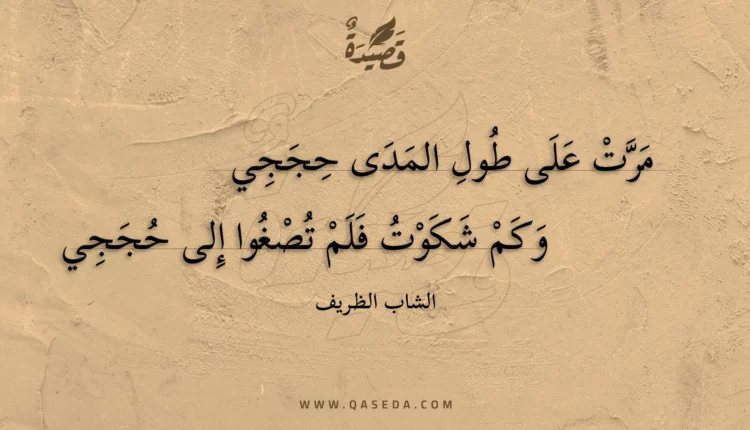 قَصِيدَةٌ
مَرَّتْ عَلَى طُولِ المَدَى حِجَجِي
وَكَمْ شَكَوْتُ فَلَمْ تُصْغُوا إِلى حُجَجِي
الشاب الظريف
WWW.QASEDA.COM